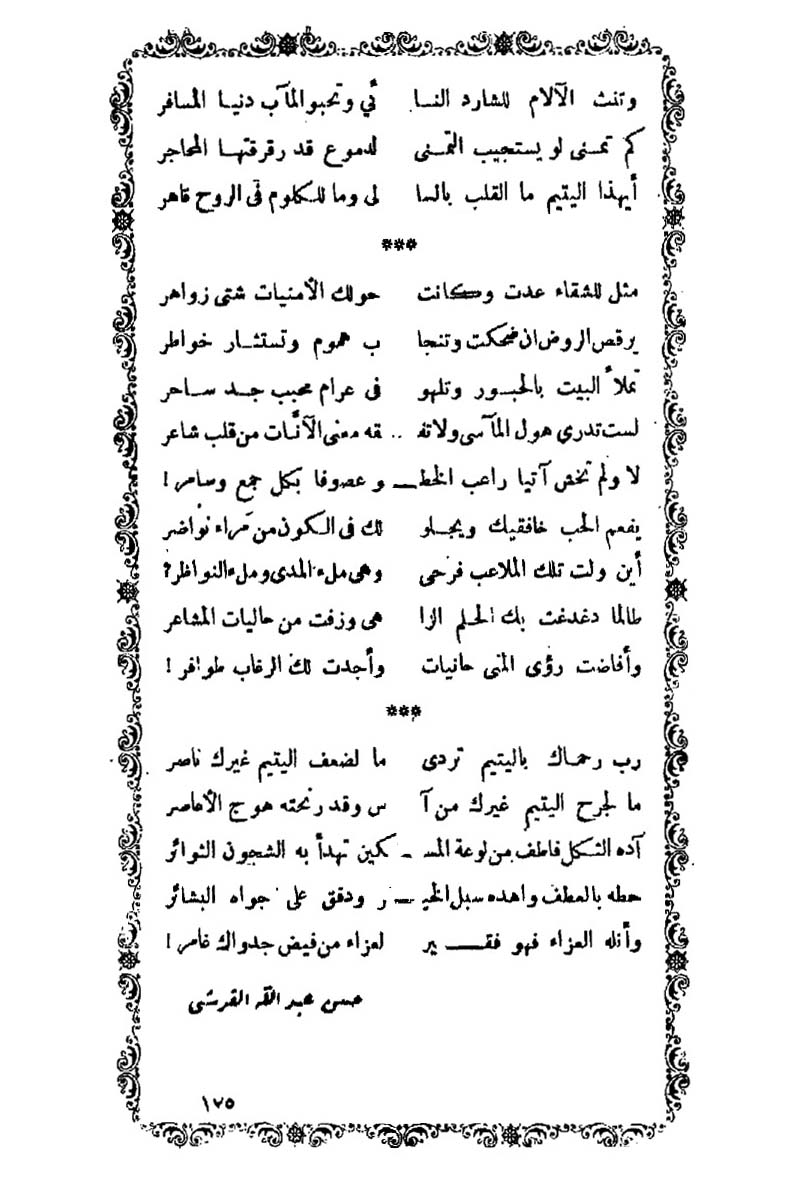 وتنث الآلام للشارد النا ئي وتحبو المآب دنيا المسافر
كم تمنى لو يستجيب التمنى لدموع قد رقرقتها المحاجر
أيهذا اليتيم ما القلب بالسا لى وما للكلوم فى الروح قاهر
***
مثل للشقاء عدت وكانت حولك الأمنيات شتى زواهر
يرقص الروض ان ضحكت وتنجا ب هموم وتستثار خواطر
تملأ البيت بالحبور وتلهو فى عرام محبب جد ساحر
لست تدرى هول المآسى ولا تفـ .. ـقه معنى الأنَّات من قلب شاعر
لا ولم تخش آتيا راعب الخطـ ـو عصوفا بكل جمع وسامر !
يفعم الحب خافقيك ويجلو لك فى الكون من مَراء نواضر
أين ولت تلك الملاعب فرحى وهى ملء المدى وملء النواظر ؟
طالما دغدغت بك الحلم الزا هى وزفت من حاليات المشاعر
وأفاضت رؤى المنى حانيات وأجدت لك الرغاب طوافر !
***
رب رحماك باليتيم تردى ما لضعف اليتيم غيرك ناصر
ما لجرح اليتيم غيرك من آ س وقد رنحته هوج الأعاصر
آده الثكل فاطف من لوعة المسـ ـكين تهدأ به الشجون الثوائر
حطه بالعطف واهده سبل الخيـ ـر ودفق على جواه البشائر
وأنله العزاء فهو فقـــير لعزاء من فيض جدواك غامر !
حسن عبد الله القرشى
١٧٥